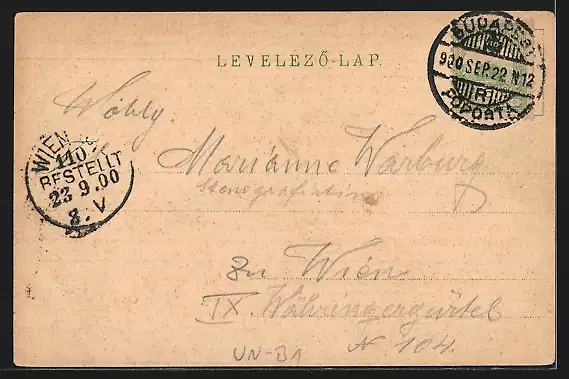 LEVELEZŐ-LAP.
BUDAPEST
900 SEP. 22. N12
FŐPOSTA
Wohlg.
WIEN
110
BESTELLT
23 9.00
8.V
Marianne Warburg
Stenografistin
Zu Wien
IX. Währingergürtel
N 104.
UN-B1